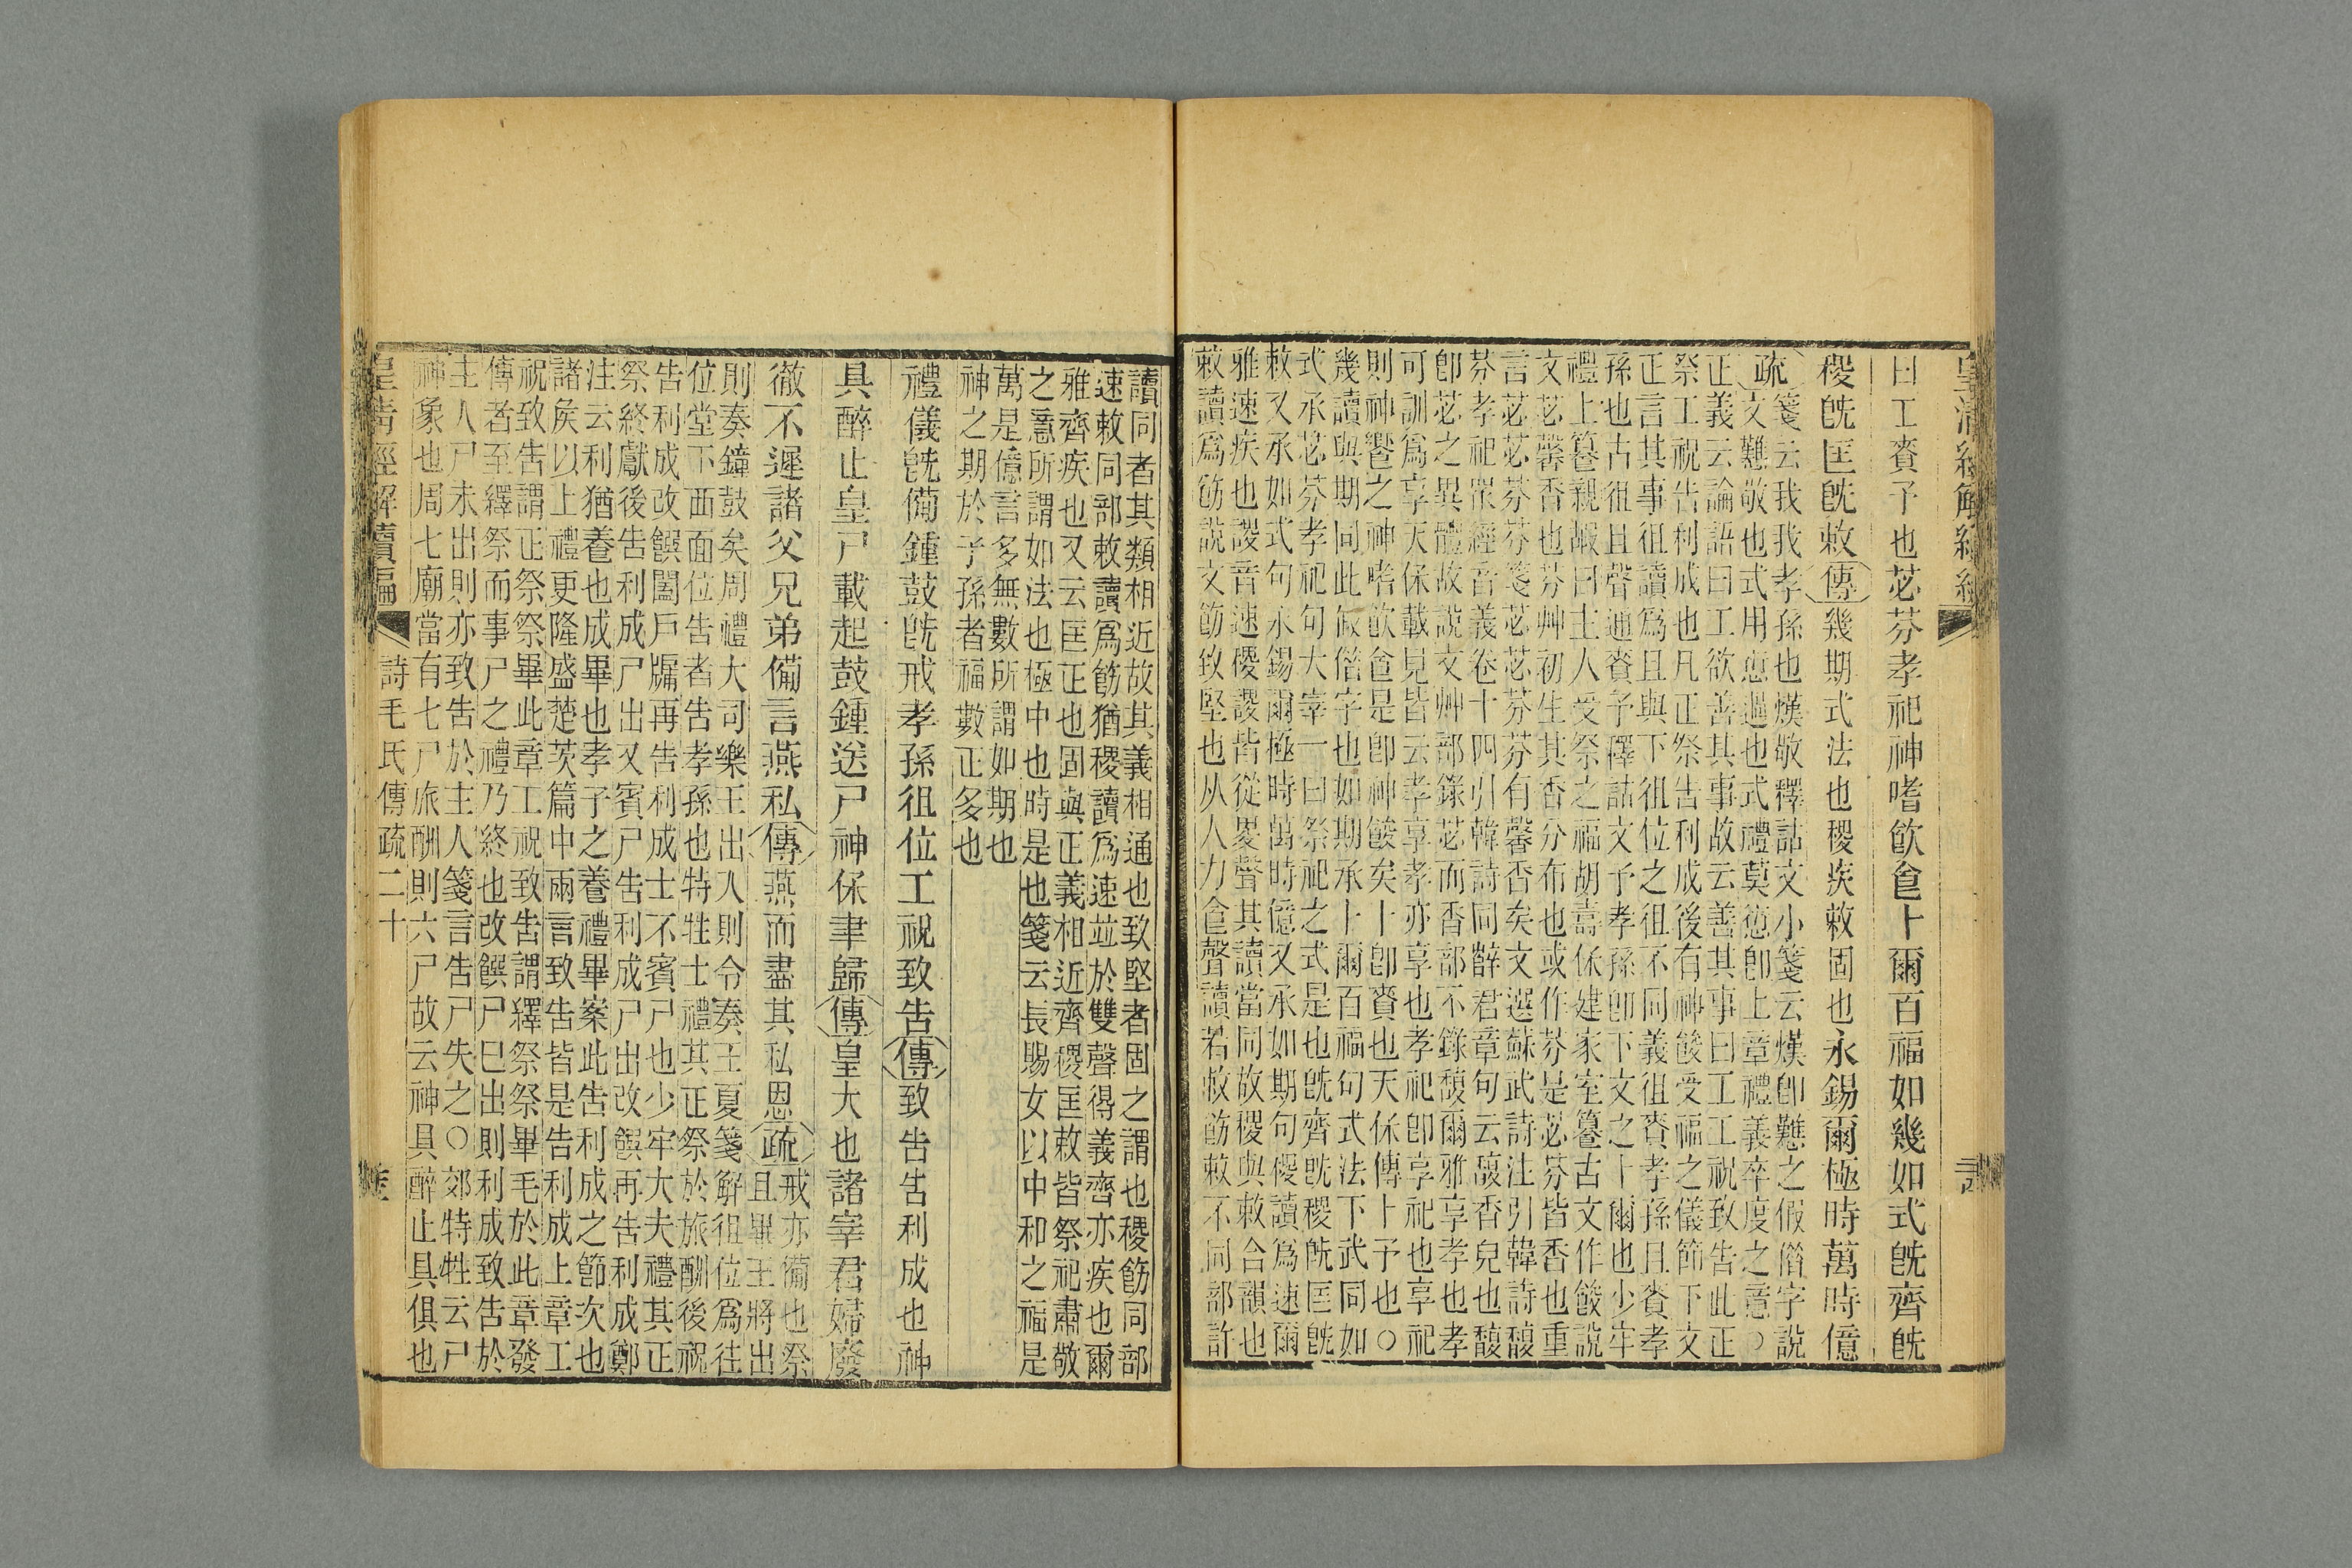 皇清經解續編
曰工賚予也苾芬孝祀神嗜飮食卜爾百福如幾如式旣齊旣
稷旣匡旣敕傳幾期式法也稷疾敕固也永錫爾極時萬時億
疏
箋云我我孝孫也熯敬釋詁文小箋云熯卽戁之假借字說
文戁敬也式用愆過也式禮莫愆卽上章禮義卒度之意○
正義云論語曰工欲善其事故云善其事曰工工祝致告此正
祭工祝告利成也凡正祭告利成後有神餕受福之儀節下文
正言其事徂讀爲且與下徂位之徂不同義徂賚孝孫且賚孝
孫也古徂且聲通賚予釋詁文予孝孫卽下文之卜爾也少牢
禮上篹親嘏曰主人受祭之福胡壽保建家室篹古文作餕說
文苾馨香也芬艸初生其香分布也或作芬是苾芬皆香也重
言苾苾芬芬箋苾苾芬芬有馨香矣文選蘇武詩注引韓詩馥
芬孝祀眾經音義卷十四引韓詩同薛君章句云馥香皃也馥
卽苾之異體故說文艸部錄苾而香部不錄馥爾雅享孝也孝
可訓爲享天保載見皆云孝享孝亦享也孝祀卽享祀也享祀
則神饗之神嗜飮食是卽神餕矣卜卽賚也天保傳卜予也○
幾讀與期同此叚借字也如期承卜爾百福句式法下武同如
式承苾芬孝祀句大宰一曰祭祀之式是也旣齊旣稷旣匡旣
敕又承如式句永錫爾極時萬時億又承如期句稷讀爲速爾
雅速疾也謖音速稷謖皆從畟聲其讀當同故稷與敕合韻也
敕讀爲飭說文飭致堅也从人力食聲讀若敕飭敕不同部許
讀同者其類相近故其義相通也致堅者固之謂也稷飭同部
速敕同部敕讀爲飭猶稷讀爲速竝於雙聲得義齊亦疾也爾
雅齊疾也又云匡正也固與正義相近齊稷匡敕皆祭祀肅敬
之意所謂如法也極中也時是也箋云長賜女以中和之福是
萬是億言多無數所謂如期也
神之期於子孫者福數正多也
禮儀旣備鍾鼓旣戒孝孫徂位工祝致告傳致告告利成也神
具醉止皇尸載起鼓鍾送尸神保聿歸傳皇大也諸宰君婦廢
徹不遲諸父兄弟備言燕私傳燕而盡其私恩疏戒亦備也祭
且畢王將出
則奏鐘鼓矣周禮大司樂王出入則令奏王夏箋解徂位爲往
位堂下西面位告者告孝孫也特牲士禮其正祭於旅酬後祝
告利成改饌闔戶牖再告利成士不賓尸也少牢大夫禮其正
祭終獻後告利成尸出又賓尸告利成尸出改饌再告利成鄭
注云利猶養也成畢也孝子之養禮畢案此告利成之節次也
諸矦以上禮更隆盛楚茨篇中兩言致告皆是告利成上章工
祝致告謂正祭祭畢此章工祝致告謂繹祭祭畢毛於此章發
傳者至繹祭而事尸之禮乃終也改饌尸巳出則利成致告於
主人尸未出則亦致告於主人箋言告尸失之○郊特牲云尸
神象也周七廟當有七尸旅酬則六尸故云神具醉止具俱也
皇清經解續編
詩毛氏傳疏二十